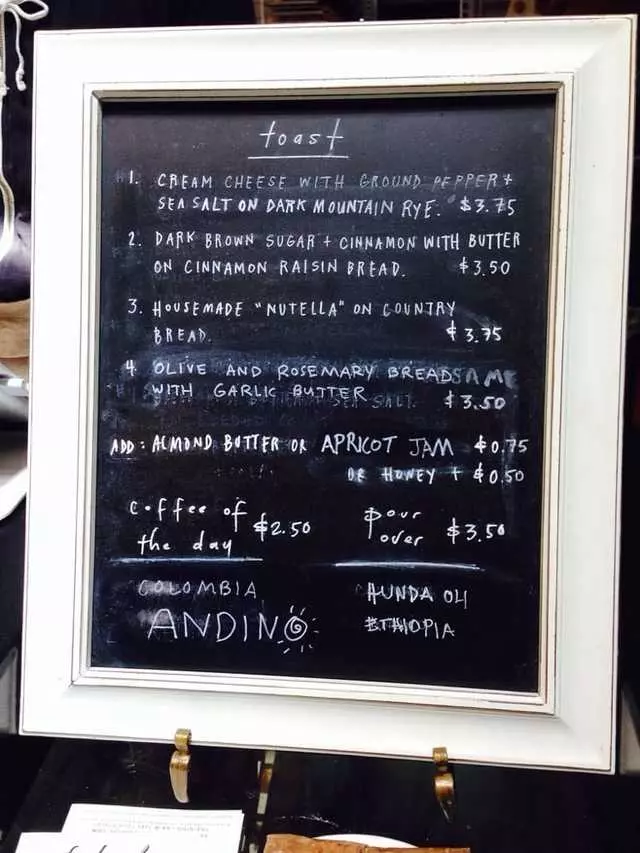 toast
1. CREAM CHEESE WITH GROUND PEPPER +
SEA SALT ON DARK MOUNTAIN RYE. $3.75
2. DARK BROWN SUGAR + CINNAMON WITH BUTTER
ON CINNAMON RAISIN BREAD. $3.50
3. HOUSEMADE "NUTELLA" ON COUNTRY
BREAD. $3.75
4. OLIVE AND ROSEMARY BREAD
WITH GARLIC BUTTER $3.50
ADD: ALMOND BUTTER OR APRICOT JAM $0.75
OR HONEY + $0.50
coffee of
the day $2.50
pour
over $3.50
COLOMBIA
ANDINO
HUNDA OLI
ETHIOPIA